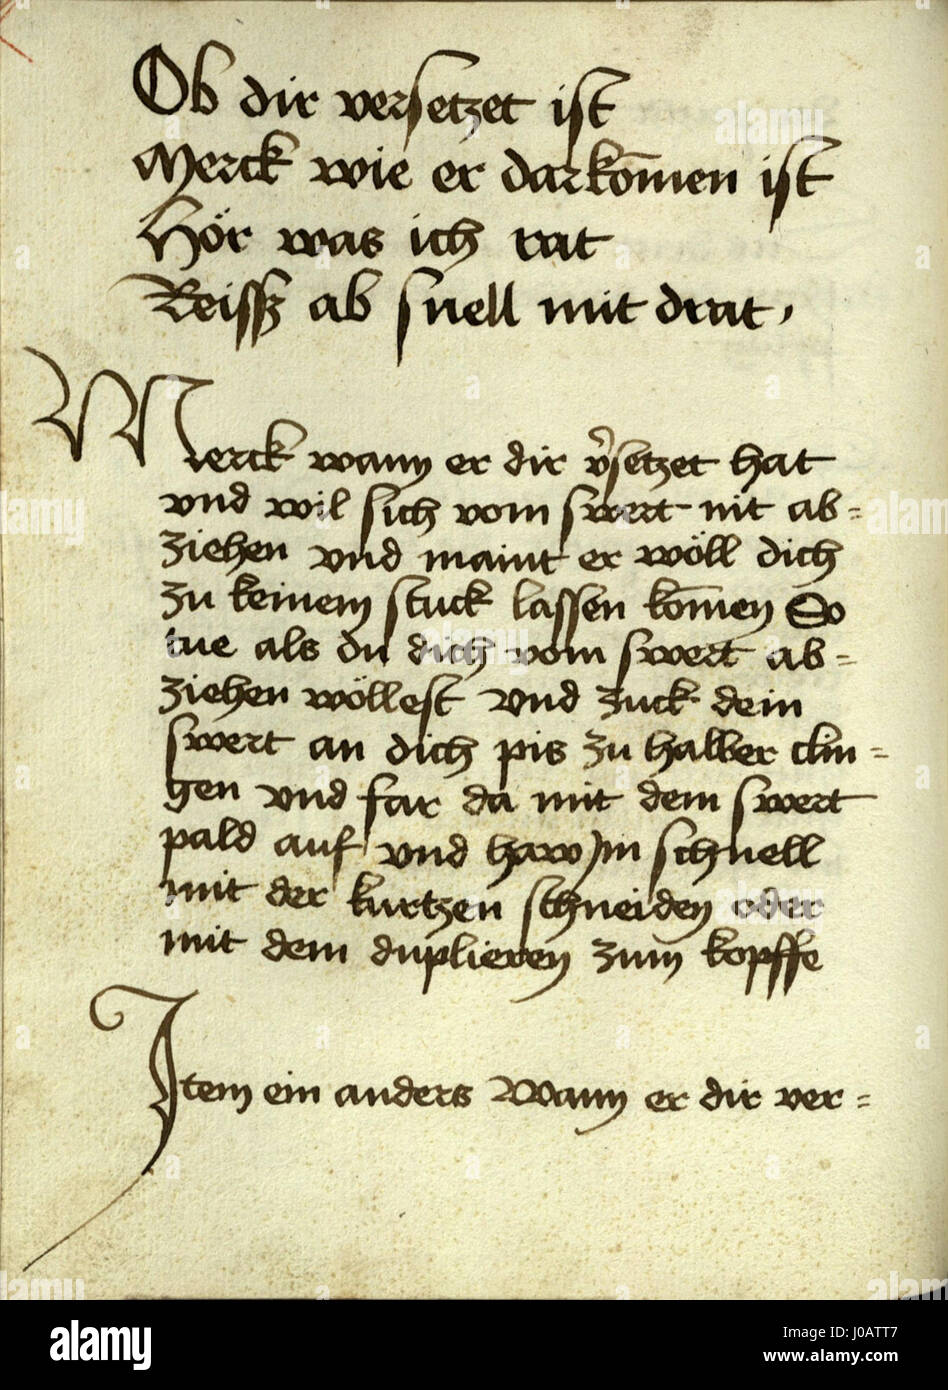 Ob dir versetzet ist
Merck wie er darkom̄en ist
Hör was ich rat
Reissz ab snell mit drat,
Merck wann er dir v̉setzet hat
vnd wil sich vom swert nit ab=
ziehen vnd maint er wöll dich
zu keinem stuck lassen kom̄en So
tue als du dich vom swert ab=
ziehen wöllest vnd zuck dein
swert an dich pis zu halber clin=
gen vnd far da mit dem swert
pald auf vnd haw in schnell
mit der kurtzen schneiden oder
mit dem duplieren zum kopffe
Item ein anders Wann er dir ver=
alamy
Image ID: J0ATT7
www.alamy.com